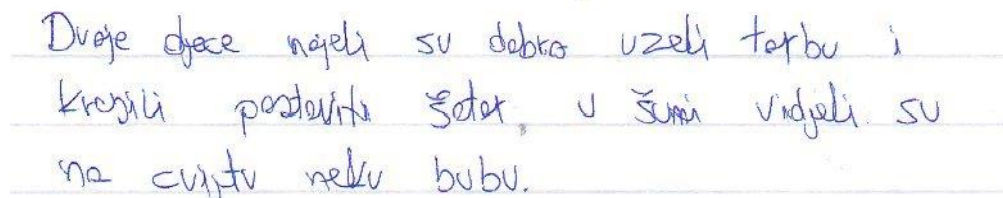 Dvoje djece najeli su dobro uzeli torbu i
krenili postaviti šator, u šumi vidjeli su
na cvijtu neku bubu.